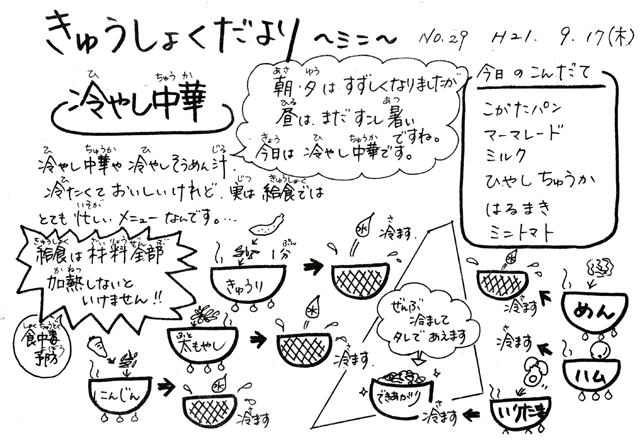 きゅうしょくだより ～ミニ～ No.29 H21. 9. 17(木)
冷やし中華
朝・夕はすずしくなりましたが
昼は、まだすこし暑い
ですね。
今日は冷やし中華です。
今日のこんだて
こがたパン
マーマレード
ミルク
ひやしちゅうか
はるまき
ミニトマト
冷やし中華や冷やしそうめん汁、
冷たくておいしいけれど、実は給食では
とても忙しいメニューなんです。…
給食は材料全部
加熱しないと
いけません!!
食中毒
予防
きゅうり
1分
冷ます
太もやし
冷ます
にんじん
冷ます
ぜんぶ
冷まして
タレであえます
できあがり
めん
冷ます
ハム
冷ます
いりたまご
冷ます